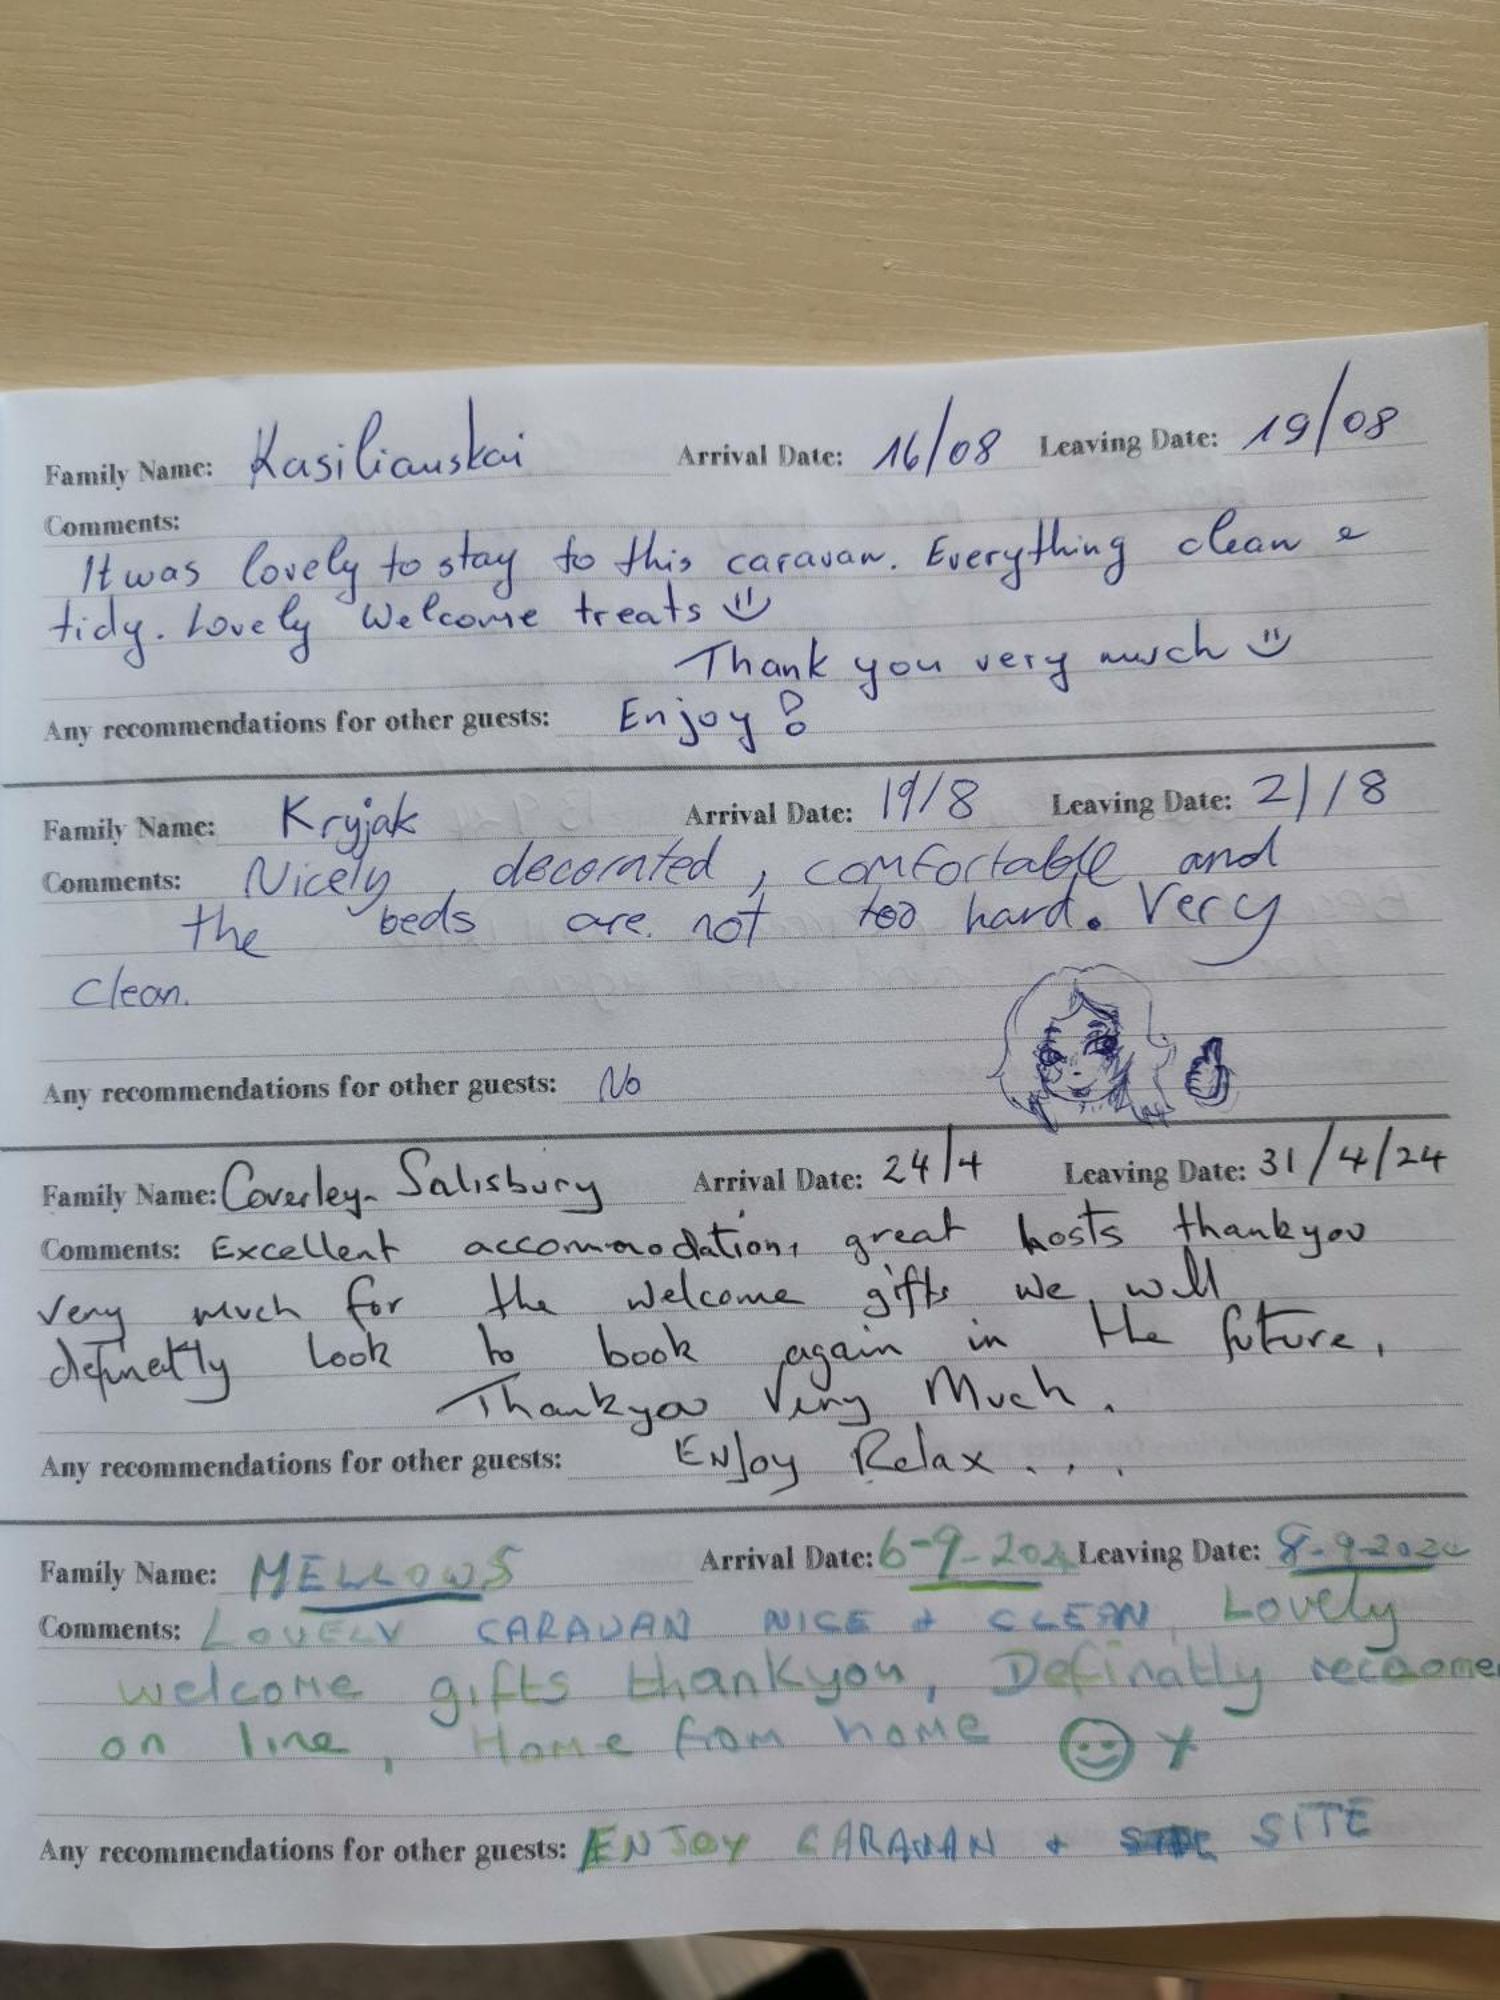 Family Name: Kasiliauskai Arrival Date: 16/08 Leaving Date: 19/08
Comments:
It was lovely to stay to this caravan. Everything clean &
tidy. Lovely Welcome treats
Thank you very much
Any recommendations for other guests: Enjoy!
Family Name: Kryjak Arrival Date: 19/8 Leaving Date: 21/8
Comments: Nicely, decorated, comfortable and
the beds are not too hard. Very
clean.
Any recommendations for other guests: No
Family Name: Coverley-Salisbury Arrival Date: 24/4 Leaving Date: 31/4/24
Comments: Excellent accommodation, great hosts thankyou
very much for the welcome gifts we will
definetly look to book again in the future,
Thankyou Very Much.
Any recommendations for other guests: Enjoy Relax . . .
Family Name: MELLOWS Arrival Date: 6-9-2024 Leaving Date: 8-9-2024
Comments: LOVELY CARAVAN NICE + CLEAN, Lovely
welcome gifts thankyou, Definatly
on line, Home from home x
Any recommendations for other guests: ENJOY CARAVAN + SITE